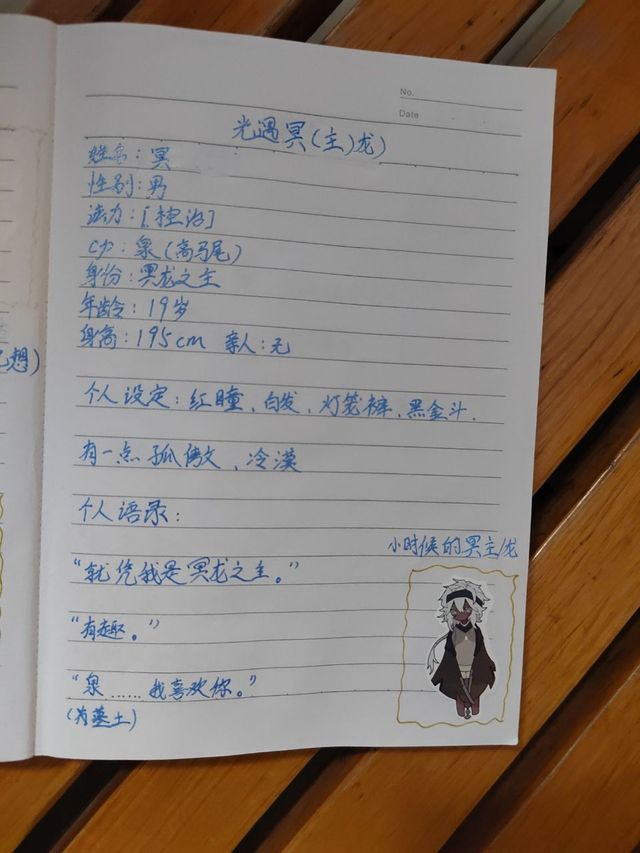 No.
Date
光遇冥(主)龙)
姓名：冥
性别：男
法力：[控治]
cp：泉(高马尾)
身份：冥龙之主
年龄：19岁
身高：195cm 亲人：无
个人设定：红瞳、白发、灯笼裤、黑金斗.
有一点孤傲、冷漠
个人语录：
小时候的冥主/龙
“就凭我是冥龙之主。”
“有趣。”
“泉……我喜欢你。”
想)